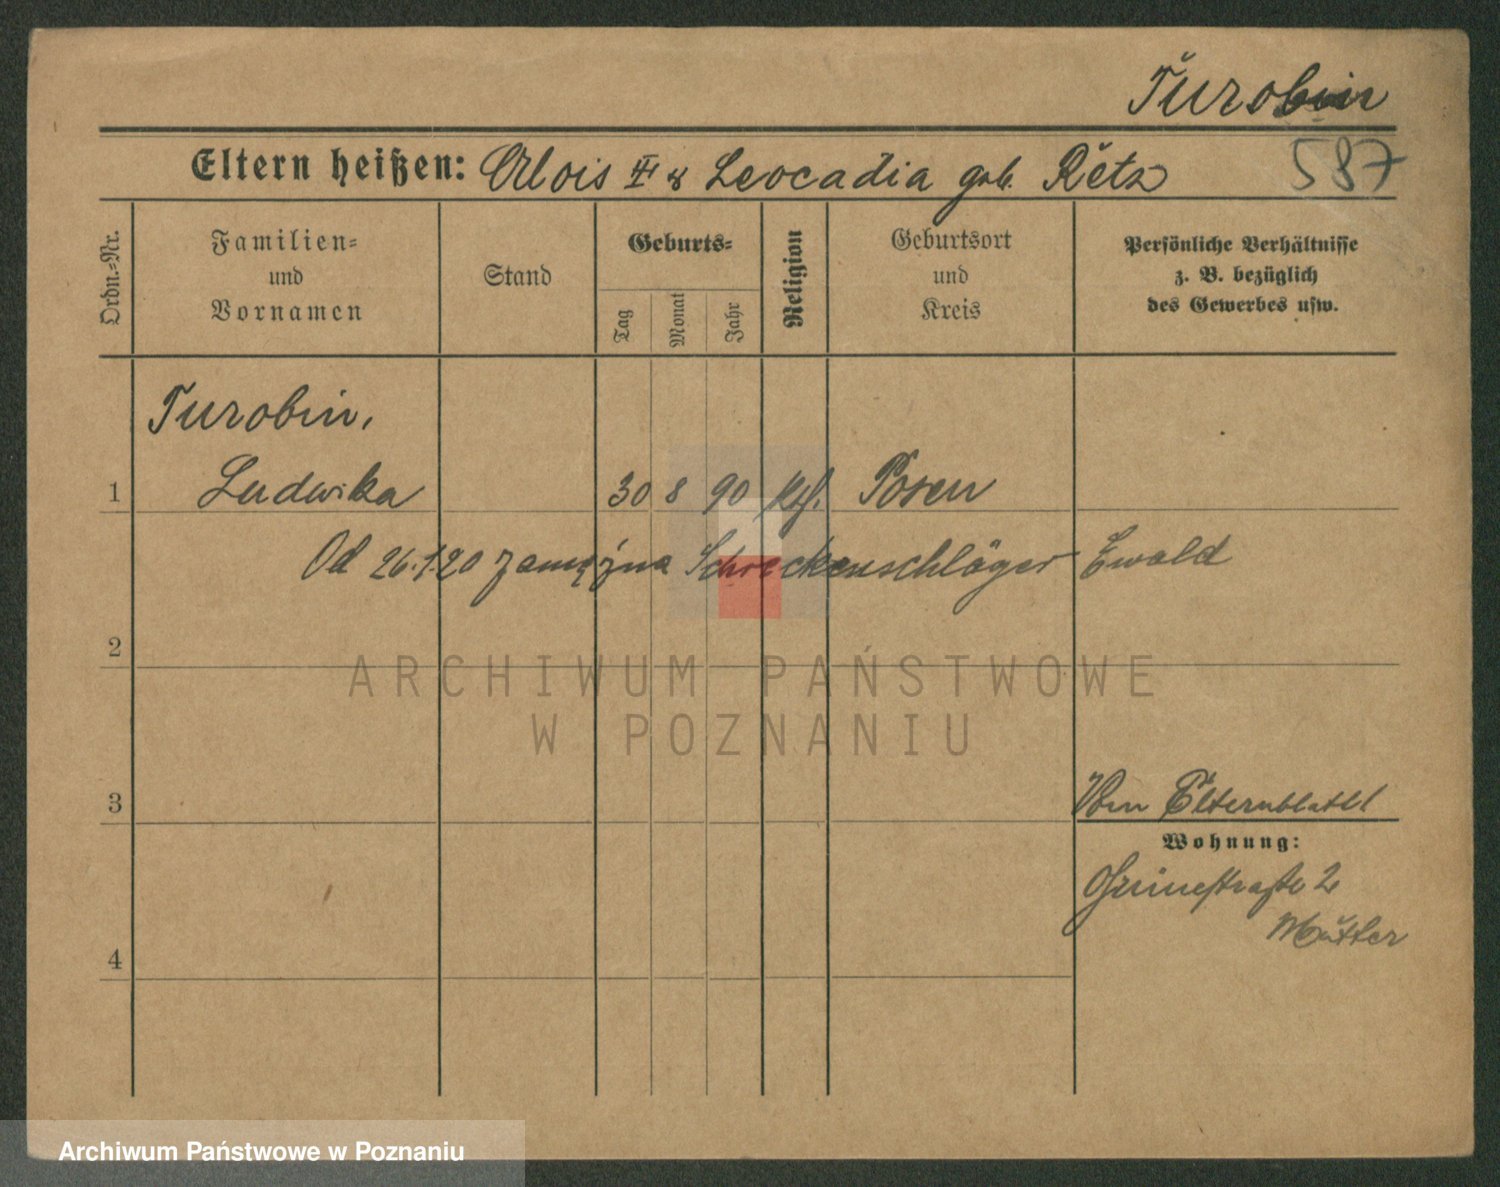 Turobin
587
Eltern heißen: Alois III & Leocadia geb. Retz
Ordn.-Nr.
Familien-
und
Vornamen
Stand
Geburts-
Tag
Monat
Jahr
Religion
Geburtsort
und
Kreis
Persönliche Verhältnisse
z. B. bezüglich
des Gewerbes usw.
Turobin,
1 Ludwika 30 8 90 Posen
Od 26.1.20 zamężna Schreckenschläger Ewald
2
ARCHIWUM PAŃSTWOWE
W POZNANIU
3
Vom Elternblatt
Wohnung:
2
Mutter
4
Archiwum Państwowe w Poznaniu